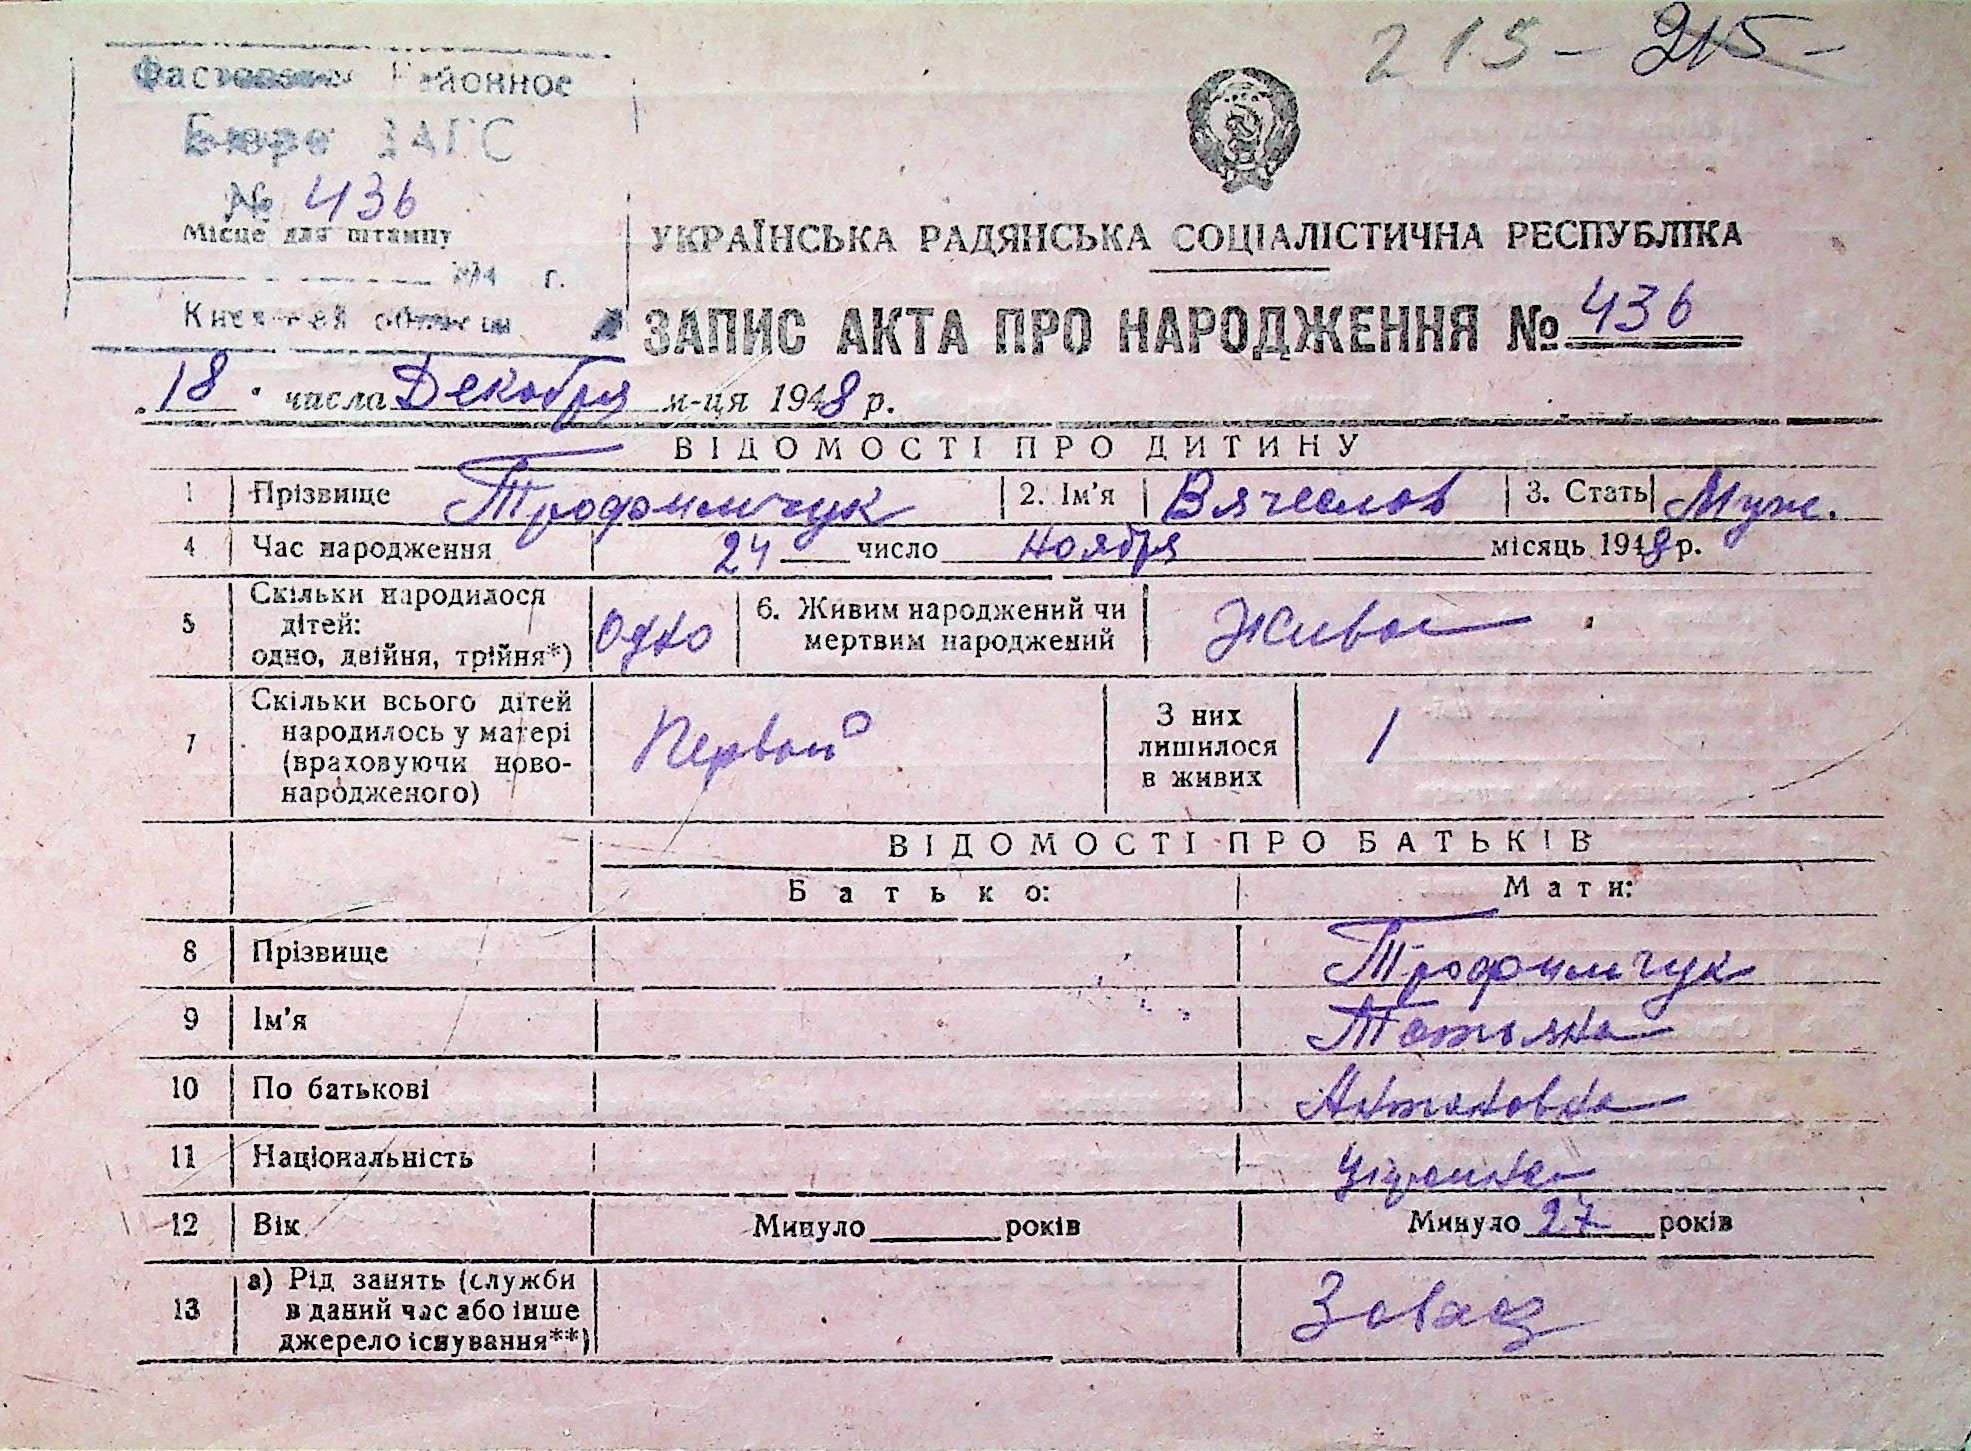 215 - 215 -
Фастовское Районное
Бюро ЗАГС
№ 436
Місце для штампу
194 г.
Киевской области
УКРАЇНСЬКА РАДЯНСЬКА СОЦІАЛІСТИЧНА РЕСПУБЛІКА
ЗАПИС АКТА ПРО НАРОДЖЕННЯ № 436
18 числа Декабря м-ця 1948 р.
ВІДОМОСТІ ПРО ДИТИНУ
1 Прізвище Трофимчук 2. Ім'я Вячеслов 3. Стать Муж.
4 Час народження 24 число ноября місяць 1948 р.
5 Скільки народилося дітей: одно, двійня, трійня*) Одно 6. Живим народжений чи мертвим народжений Живое
7 Скільки всього дітей народилось у матері (враховуючи ново-народженого) Первый З них лишилося в живих 1
ВІДОМОСТІ ПРО БАТЬКІВ
Батько: Мати:
8 Прізвище Трофимчук
9 Ім'я Татьяна
10 По батькові Антоновна
11 Національність
12 Вік Минуло років Минуло 27 років
13 а) Рід занять (служби в даний час або інше джерело існування**)